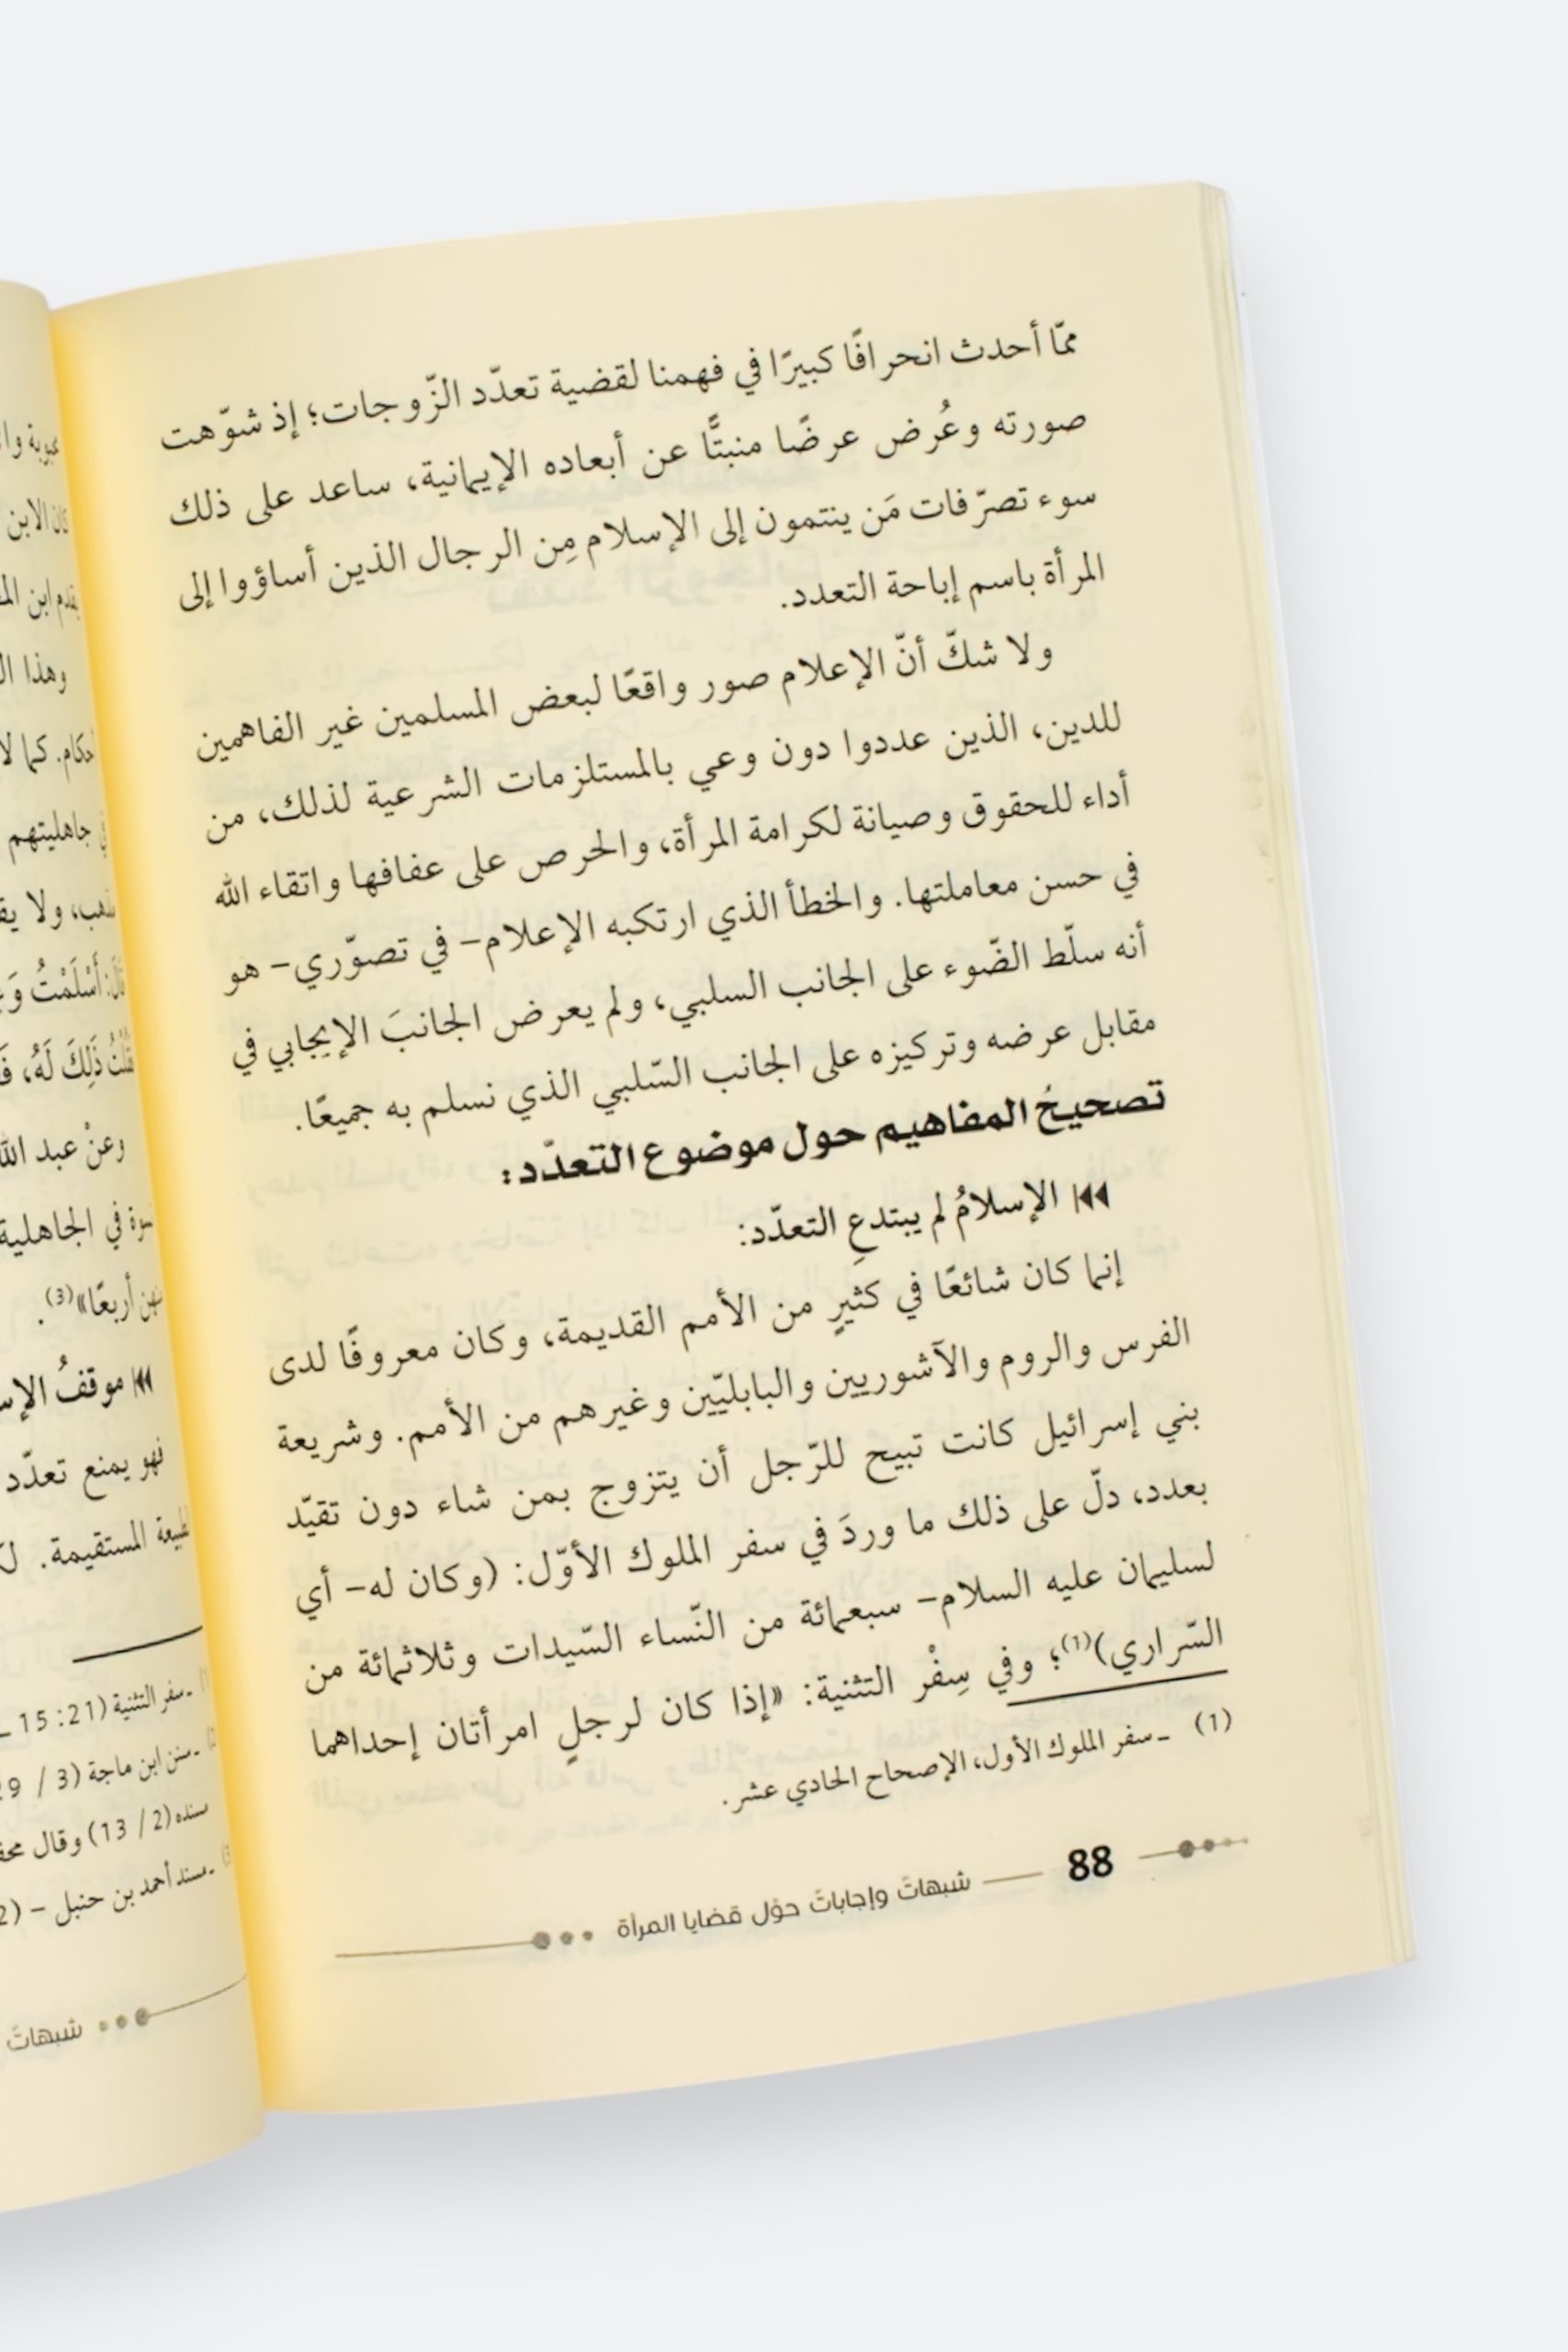 ممّا أحدث انحرافًا كبيرًا في فهمنا لقضية تعدّد الزّوجات؛ إذ شوّهت
صورته وعُرض عرضًا منبتًّا عن أبعاده الإيمانية، ساعد على ذلك
سوء تصرّفات مَن ينتمون إلى الإسلام مِن الرجال الذين أساؤوا إلى
المرأة باسم إباحة التعدد.
ولا شكّ أنّ الإعلام صور واقعًا لبعض المسلمين غير الفاهمين
للدين، الذين عددوا دون وعي بالمستلزمات الشرعية لذلك، من
أداء للحقوق وصيانة لكرامة المرأة، والحرص على عفافها واتقاء الله
في حسن معاملتها. والخطأ الذي ارتكبه الإعلام- في تصوّري- هو
أنه سلّط الضّوء على الجانب السلبي، ولم يعرض الجانبَ الإيجابي في
مقابل عرضه وتركيزه على الجانب السّلبي الذي نسلم به جميعًا.
تصحيحُ المفاهيم حول موضوع التعدّد:
الإسلامُ لم يبتدعِ التعدّد:
إنما كان شائعًا في كثيرٍ من الأمم القديمة، وكان معروفًا لدى
الفرس والروم والآشوريين والبابليّين وغيرهم من الأمم. وشريعة
بني إسرائيل كانت تبيح للرّجل أن يتزوج بمن شاء دون تقيّد
بعدد، دلّ على ذلك ما وردَ في سفر الملوك الأوّل: (وكان له- أي
لسليمان عليه السلام- سبعمائة من النّساء السّيدات وثلاثمائة من
السّراري)(1)؛ وفي سِفْر التثنية: «إذا كان لرجلٍ امرأتان إحداهما
(1) ـ سفر الملوك الأول، الإصحاح الحادي عشر.
88 شبهاتٌ وإجاباتٌ حوْل قضايا المرأة
كان الابن
وهذا
كما لا
جاهليتهم
ولا
أَسْلَمْتُ
ذَلِكَ لَهُ،
وعنْ عبد الله
في الجاهلية
أربعًا»(3).
موقفُ
فهو يمنع تعدّد
المستقيمة.
ـ سفر التثنية (21: 15
ـ سنن ابن ماجة (3 /
(2/ 13) وقال
ـ مسند أحمد بن حنبل –
شبهاتٌ